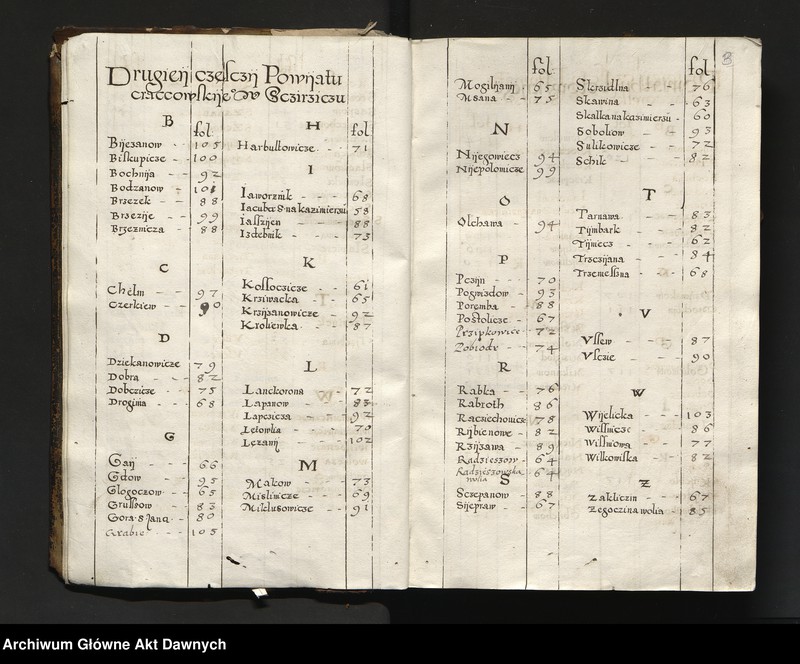 Drugieij częsczij Powijatu
craccowskije° w Sczirziczu
B
fol
Bijezanow - - 105
Biskupicze - - 100
Bochnija - - 92
Bodzanow - 101
Brzezek - - 88
Brzezije - - 99
Brzeznicza - - 88
C
Chelm - - 97
Czerkiew - - 90
D
Dziekanowicze 79
Dobra - - - 82
Dobczicze - - 75
Droginia - - 68
G
Gaij - - 66
Gdow - - 95
Glogoczow - - 65
Grussow - - 83
Gora S Jana - 80
Grabie - - - 105
H
fol
Harbultowicze - - 71
I
Iawornik - - - 68
Iacuba S na kazimierzu 58
Iassijen - - - 88
Izdebnik - - - 73
K
Kossoczicze - - 61
Krziwacka - - 65
Krzijzanowicze - - 92
Krolewka - - 87
L
Lanckorona - - 72
Lapanow - - 83
Lapczicza - - 92
Letowlia - - 70
Lęzanij - - 102
M
Makow - - - 73
Mislimicze - - 69
Mikluszowicze - - 91
fol
Mogilijanij - - 65
Msana - - 75
N
Nijegowiecz 94
Nijepolomicze 99
O
Olchawa - - 94
P
Pczijn - - 70
Pogwizdow - - 93
Poremba - - 88
Postolicze - - 67
Przipkowice - - 72
Zobiodr - - 74
R
Rabka - - 76
Rabroth 86
Raciechowicze 78
Rijbienowe - - 82
Rzijzawa - - 89
Radzieszow - - 64
Radzieszowska
wolia - - 64
S
Sczepanow - - 88
Sijepraw - - 67
3
fol
Skrzidlna - - 76
Skawina - - 63
Skalka na kazimierzu - 60
Sobolow - - 93
Sulikowicze - - 72
Schik - - 82
T
Tarnawa - - 83
Tijmbark - - 82
Tijniecz - - 62
Trzczijana - - 84
Trzemessna - - 68
V
Vssew - - - 87
Vsczie - - - 90
W
Wijelicka - - - 103
Wissnicze - - 86
Wissniowa - - 77
Wilkowiska - - 82
Z
Zakliczin - - 67
Zegoczina wolia - 85
Archiwum Główne Akt Dawnych